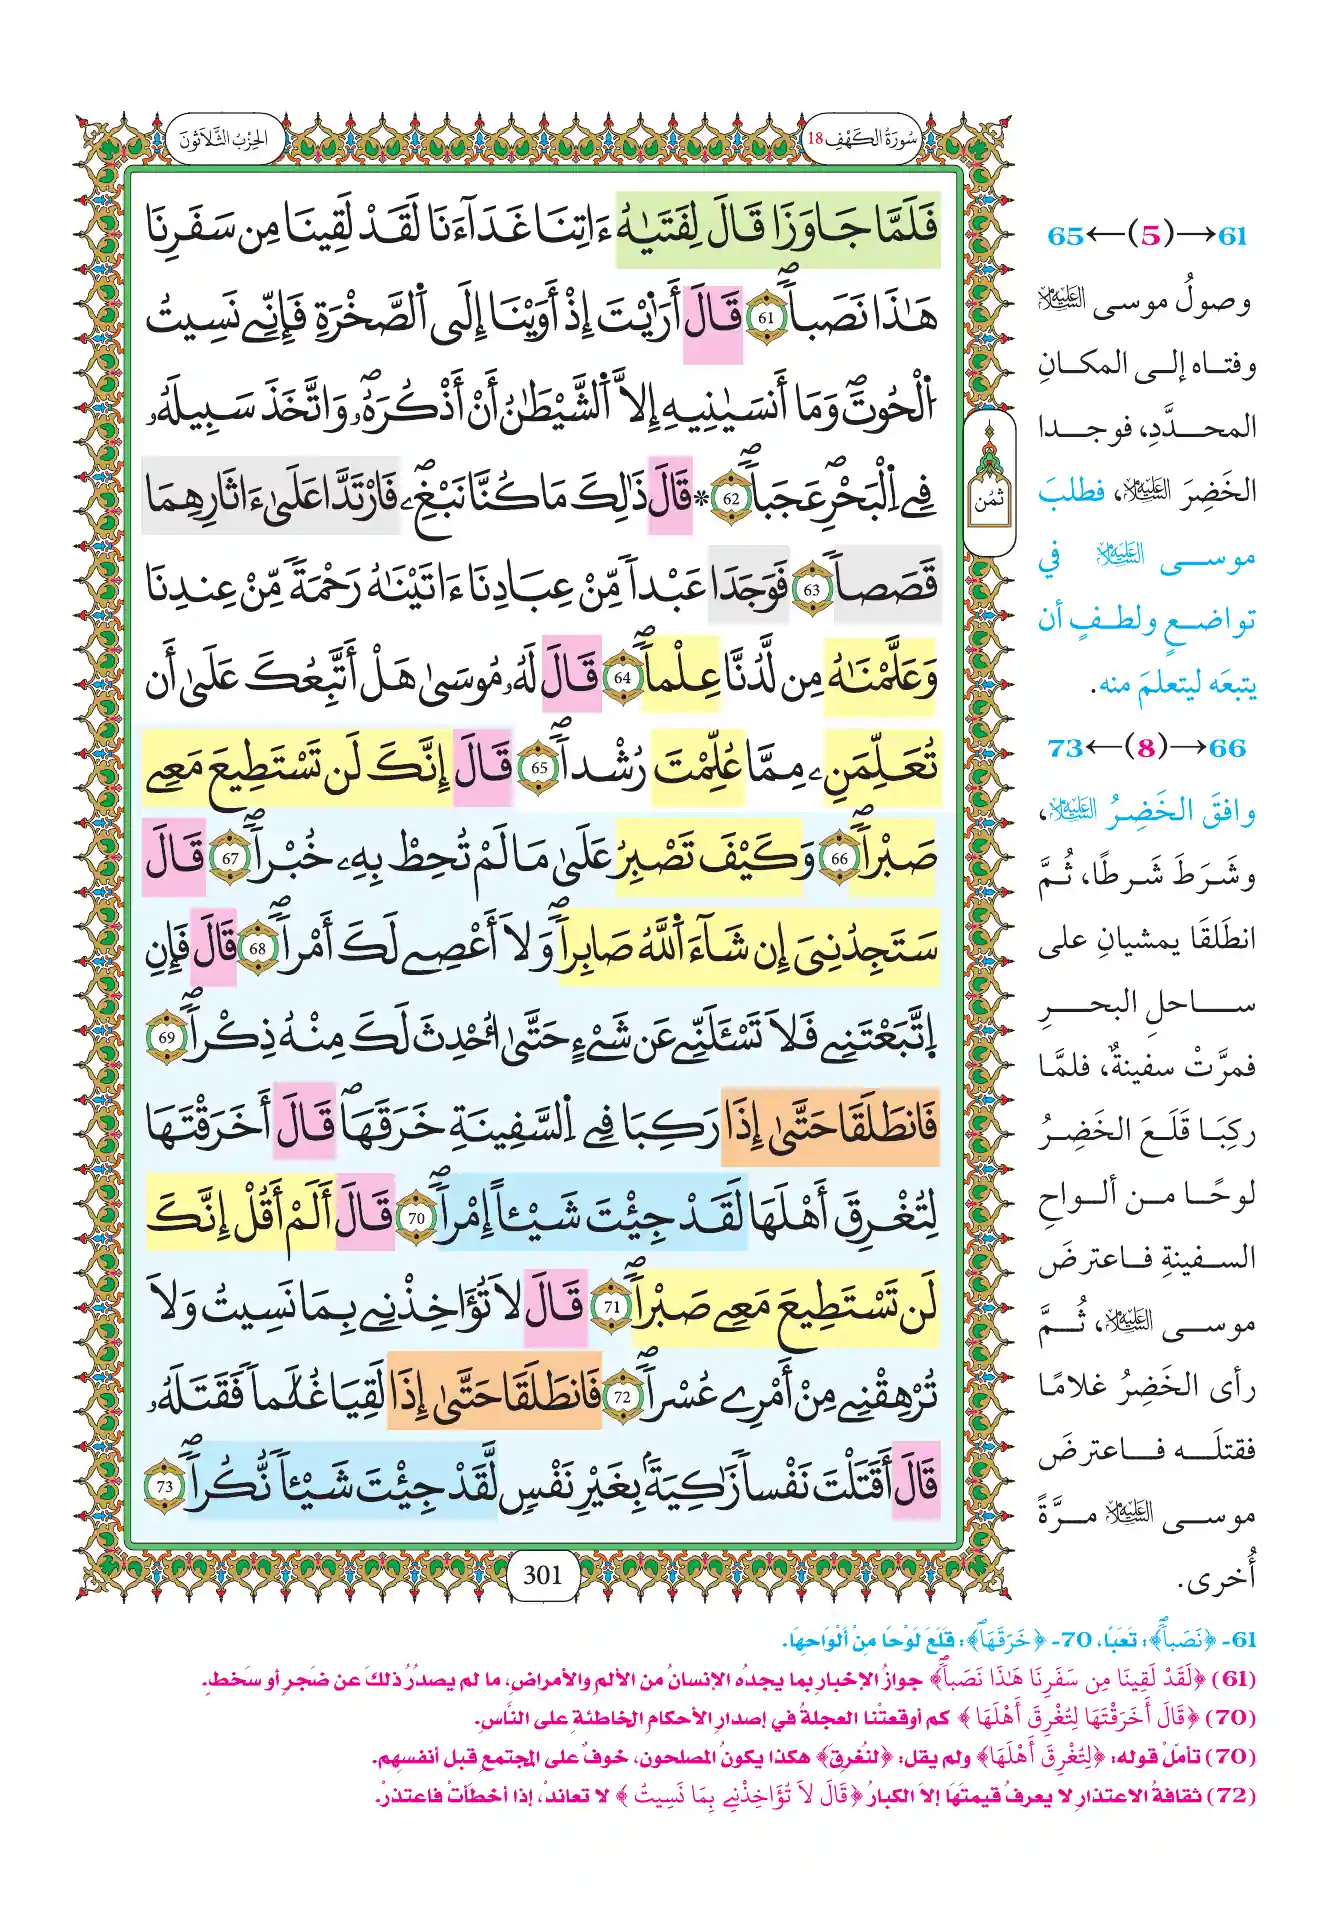 سُورَةُ الكَهْفِ 18
الحِزْبُ الثَّلَاثُونَ
فَلَمَّا جَاوَزَا قَالَ لِفَتَىٰهُ ءَاتِنَا غَدَآءَنَا لَقَدْ لَقِينَا مِن سَفَرِنَا
هَٰذَا نَصَباٗۖ 61 قَالَ أَرَٰيْتَ إِذْ أَوَيْنَا إِلَى اَ۬لصَّخْرَةِ فَإِنِّے نَسِيتُ
اُ۬لْحُوتَۖ وَمَا أَنسَىٰنِيهِ إِلَّا اَ۬لشَّيْطَٰنُ أَنْ أَذْكُرَهُۥۖ وَاتَّخَذَ سَبِيلَهُۥ
فِے اِ۬لْبَحْرِۖ عَجَباٗۖ 62 * قَالَ ذَٰلِكَ مَا كُنَّا نَبْغِۦۖ فَارْتَدَّا عَلَىٰ ءَاثَارِهِمَا
قَصَصاٗۖ 63 فَوَجَدَا عَبْداٗ مِّنْ عِبَادِنَا ءَاتَيْنَٰهُ رَحْمَةٗ مِّنْ عِندِنَا
وَعَلَّمْنَٰهُ مِن لَّدُنَّا عِلْماٗۖ 64 قَالَ لَهُۥ مُوسَىٰ هَلْ أَتَّبِعُكَ عَلَىٰ أَن
تُعَلِّمَنِۦ مِمَّا عُلِّمْتَ رُشْداٗۖ 65 قَالَ إِنَّكَ لَن تَسْتَطِيعَ مَعِے
صَبْراٗۖ 66 وَكَيْفَ تَصْبِرُ عَلَىٰ مَا لَمْ تُحِطْ بِهِۦ خُبْراٗۖ 67 قَالَ
سَتَجِدُنِيَ إِن شَآءَ اَ۬للَّهُ صَابِراٗۖ وَلَا أَعْصِے لَكَ أَمْراٗۖ 68 قَالَ فَإِنِ
اِ۪تَّبَعْتَنِے فَلَا تَسْـَٔلَنِّے عَن شَےْءٍ حَتَّىٰ أُحْدِثَ لَكَ مِنْهُ ذِكْراٗۖ 69
فَانطَلَقَا حَتَّىٰ إِذَا رَكِبَا فِے اِ۬لسَّفِينَةِ خَرَقَهَاۖ قَالَ أَخَرَقْتَهَا
لِتُغْرِقَ أَهْلَهَا لَقَدْ جِئْتَ شَيْـٔاً إِمْراٗۖ 70 قَالَ أَلَمْ أَقُلْ إِنَّكَ
لَن تَسْتَطِيعَ مَعِے صَبْراٗۖ 71 قَالَ لَا تُؤَاخِذْنِے بِمَا نَسِيتُ وَلَا
تُرْهِقْنِے مِنْ أَمْرِے عُسْراٗۖ 72 فَانطَلَقَا حَتَّىٰ إِذَا لَقِيَا غُلَٰماٗ فَقَتَلَهُۥ
قَالَ أَقَتَلْتَ نَفْساٗ زَٰكِيَةَۢ بِغَيْرِ نَفْسٖ لَّقَدْ جِئْتَ شَيْـٔاٗ نُّكُراٗۖ 73
301
ثُمُن
61→(5)←65
وصولُ موسى عَلَيْهِ السَّلَامُ
وفتاه إلى المكانِ
المحدَّدِ، فوجدا
الخَضِرَ عَلَيْهِ السَّلَامُ، فطلبَ
موسى عَلَيْهِ السَّلَامُ في
تواضعٍ ولطفٍ أن
يتبعَه ليتعلمَ منه.
66→(8)←73
وافقَ الخَضِرُ عَلَيْهِ السَّلَامُ،
وشَرَطَ شَرطًا، ثُمَّ
انطَلَقَا يمشيانِ على
ساحلِ البحرِ
فمرَّتْ سفينةٌ، فلمَّا
ركِبَا قَلَعَ الخَضِرُ
لوحًا من ألواحِ
السفينةِ فاعترضَ
موسى عَلَيْهِ السَّلَامُ، ثُمَّ
رأى الخَضِرُ غلامًا
فقتلَه فاعترضَ
موسى عَلَيْهِ السَّلَامُ مرَّةً
أُخرى.
61- ﴿نَصَباٗۖ﴾: تَعَبًا، 70- ﴿خَرَقَهَاۖ﴾: قَلَعَ لَوْحًا مِنْ أَلْوَاحِهَا.
(61) ﴿لَقَدْ لَقِينَا مِن سَفَرِنَا هَٰذَا نَصَباٗۖ﴾ جوازُ الإخبارِ بما يجدُه الإنسانُ من الألمِ والأمراضِ، ما لم يصدُرْ ذلكَ عن ضجرٍ أو سَخطٍ.
(70) ﴿قَالَ أَخَرَقْتَهَا لِتُغْرِقَ أَهْلَهَا﴾ كم أوقعتْنا العجلةُ في إصدارِ الأحكامِ الخاطئةِ على النَّاسِ.
(70) تأملْ قوله: ﴿لِتُغْرِقَ أَهْلَهَا﴾ ولم يقل: ﴿لتُغرِقَ﴾ هكذا يكونُ المصلحون، خوفٌ على المجتمعِ قبل أنفسِهم.
(72) ثقافةُ الاعتذارِ لا يعرفُ قيمتَهَا إلا الكبارُ ﴿قَالَ لَا تُؤَاخِذْنِے بِمَا نَسِيتُ﴾ لا تعاندْ، إذا أخطأتْ فاعتذرْ.